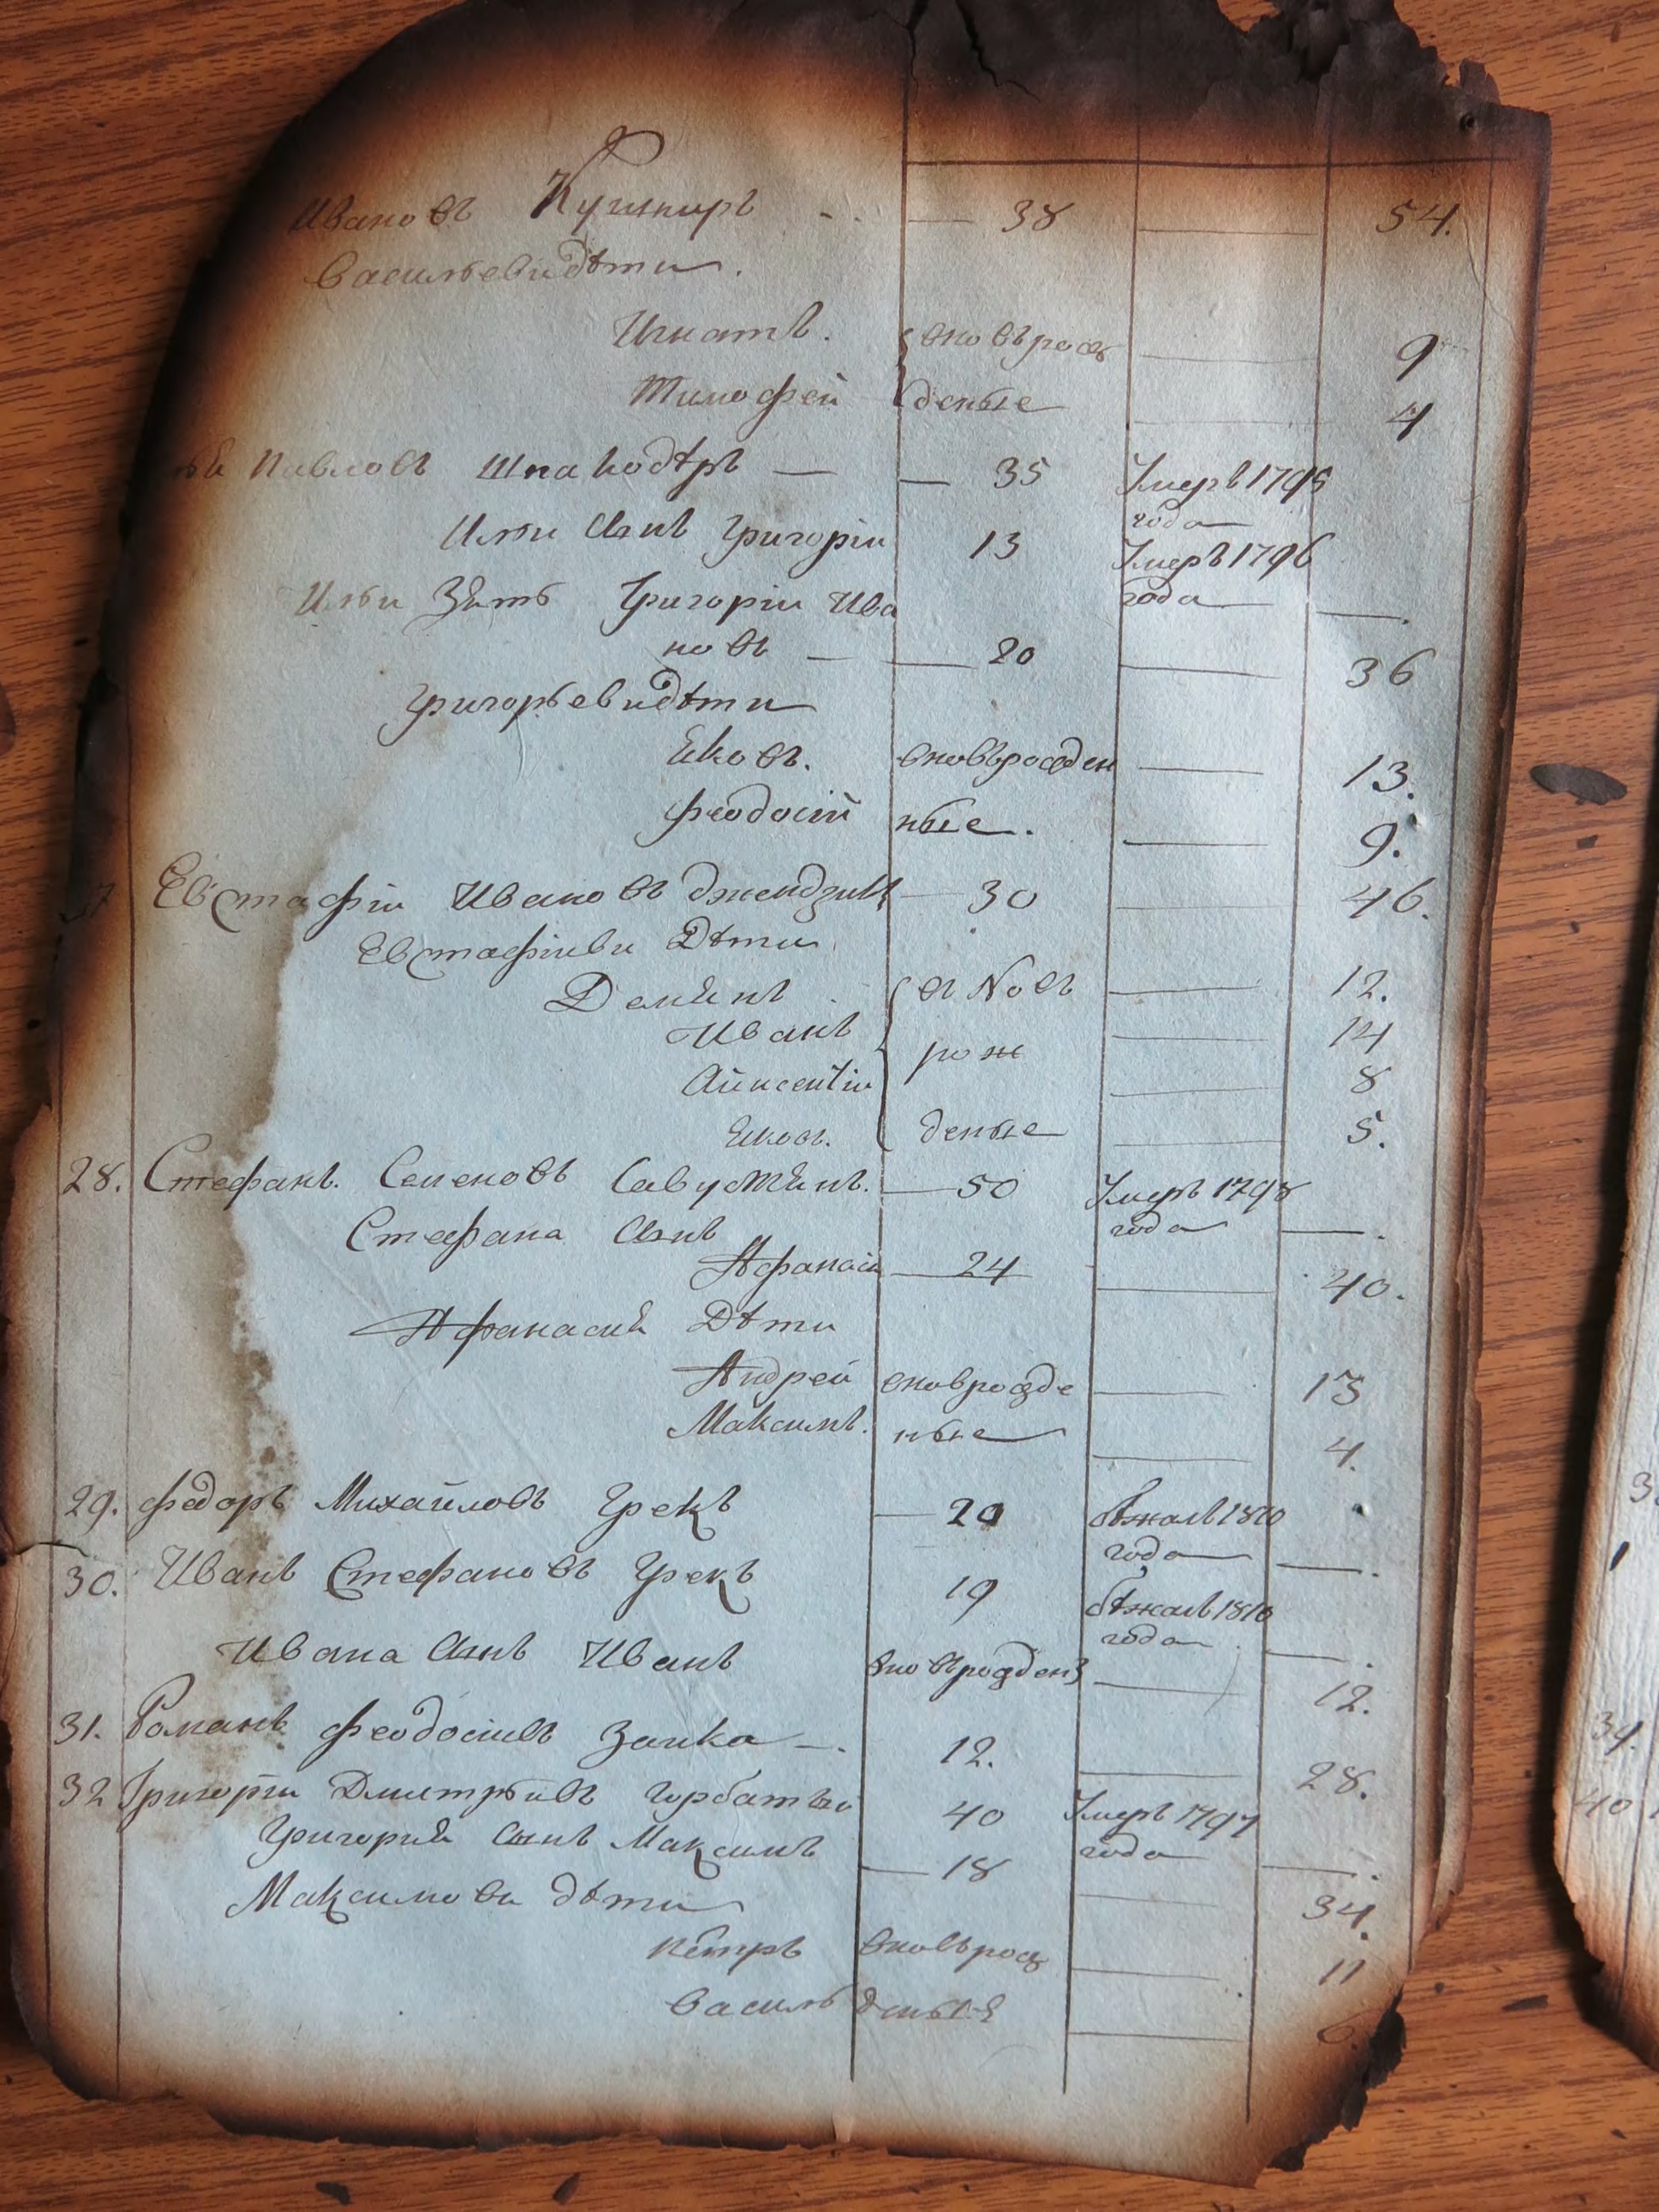 Ивановъ Кушниръ — 38 — 54.
Васильеви дѣти.
Игнатъ. вновьрож — 9
Тимофей деные — 4
Павловъ Шпакодѣръ — 35 Умеръ 1795
года
Ильи Сынъ Григоріи 13 Умеръ 1796
года — .
Ильи Зять Григоріи Ива
новъ — 20 — 36
Григорьеви дѣти
Яковъ. вновьрожден — 13.
Феодосій ные. — 9.
Евстафіи Ивановъ Джендзикъ — 30 — 46.
Евстафіиви Дѣти
Демянъ въ Новъ — 12.
Иванъ — 14
рож
Авксентіи — 8
Яковъ. деные — 5.
28. Стефанъ. Семеновъ Савустянъ. — 50 Умеръ 1798
года — .
Стефана Сынъ
Афанаси — 24 — 40.
Афанасия Дѣти
Андрей вновьрожде — 13
Максимъ. ные — 4.
29. Федоръ Михайловъ Грекъ — 20 бѣжалъ 1810
года — .
30. Иванъ Стефановъ Грекъ 19 бѣжалъ 1810
года — .
Ивана Сынъ Иванъ вновьрожденъ — 12.
31. Романъ Феодосиивъ Заика — . 12. — 28.
32 Григоріи Дмитрьивъ Горбатый 40 Умеръ 1797
года — .
Григория Сынъ Максимъ — 18 — 34.
Максимови дѣти
Петръ вновьрож — 11
Василь деные — 6.